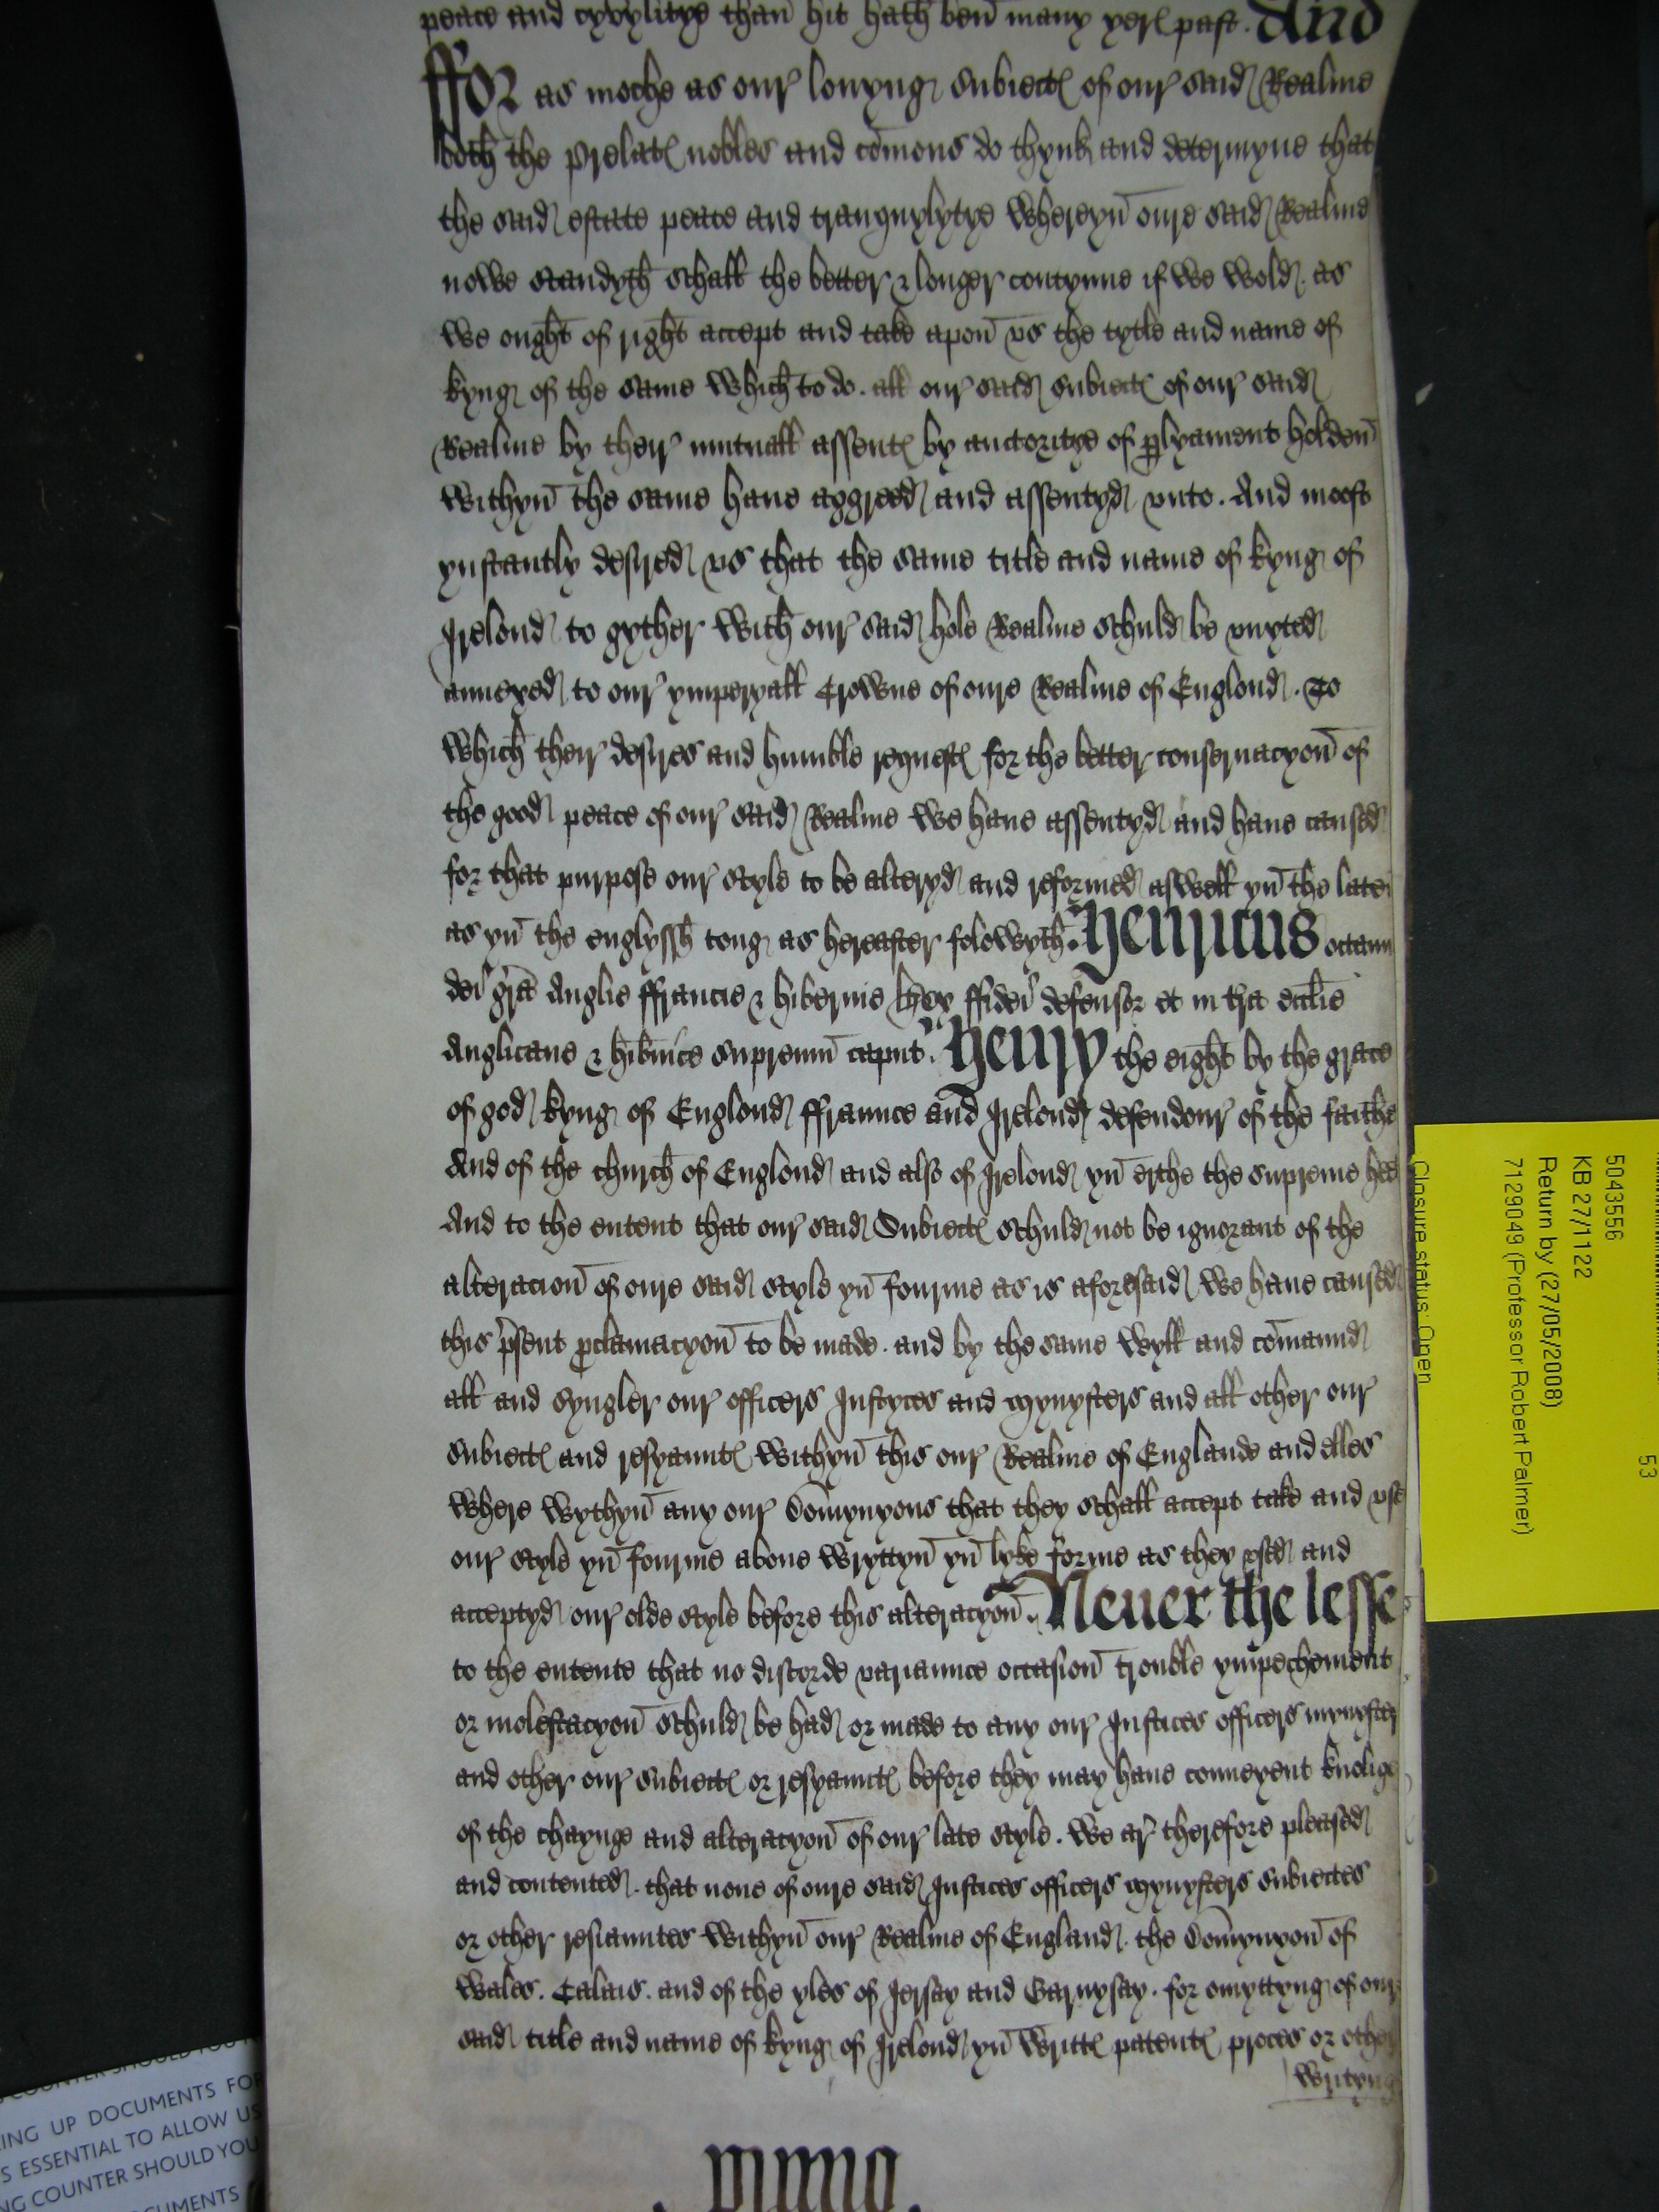 peace and cyvylitye than hit hath ben many yers past. And
ffor as moche as our lovyng subiectes of our said Realme
both the prelates nobles and comons do thynk and determyne that
the said estate peace and tranquylytye wheryn oure said Realme
nowe standyth schall the better & longer contynue if we wold. as
we ought of right accept and take apon vs the tytle and name of
kyng of the same which to do. all our said subiectes of our said
Realme by their mutuall assentes by auctoritye of plyament holden
withyn the same haue aggreed and assentyd vnto. And moost
ynstantly desired vs that the same title and name of kyng of
Irelond to gyther with our said hole Realme schuld be vnyted
annexed to our ymperyall Crowne of oure Realme of Englond. To
which their desires and humble requestes for the better conseruacyon of
the good peace of our said Realme we haue assentyd and haue caused
for that purpose our style to be alteryd and reformed aswell yn the laten
as yn the englyssh tong as hereafter folowyth. Henricus octauu
dei gra Anglie ffrancie & hibernie Rex ffidei defensor et in tra ecclie
Anglicane & hibnice supremu caput. Henry the eight by the grace
of god kyng of Englond ffraunce and Irelond defendour of the faithe
And of the church of Englond and also of Irelond yn erthe the supreme hed
And to the entent that our said Subiectes schuld not be ignorant of the
alteracion of oure said style yn fourme as is aforesaid we haue caused
this psent pclamacyon to be made. and by the same wyll and comaund
all and syngler our officers Iustyces and mynysters and all other our
subiectes and resyauntes withyn this our Realme of Englande and elles
where wythyn any our Domynyons that they schall accept take and vse
our style yn fourme aboue wryttyn yn lyke forme as they vsed and
acceptyd our olde style before this alteracyon. Neuer the lesse
to the entente that no discorde variaunce occasion trouble ympechement
or molestacyon schuld be had or made to any our Iustices officers mynyster
and other our subiectes or resyauntes before they may haue conueyent knolige
of the chaynge and alteracyon of our late style. We ar therefore pleased
and contented. that none of oure said Iustices officers mynysters subiectes
or other resiauntes withyn our Realme of England. the Domynyon of
Wales. Calais. and of the yles of Jersay and Garnysay. for omyttyng of our
said title and name of kyng of Irelond yn writtes patentes proces or other
writyng
5043556
KB 27/1122
Return by (27/05/2008)
7129049 (Professor Robert Palmer)
Closure status: Open
53
ING UP DOCUMENTS FO
S ESSENTIAL TO ALLOW US
NG COUNTER SHOULD YOU
CUMENTS